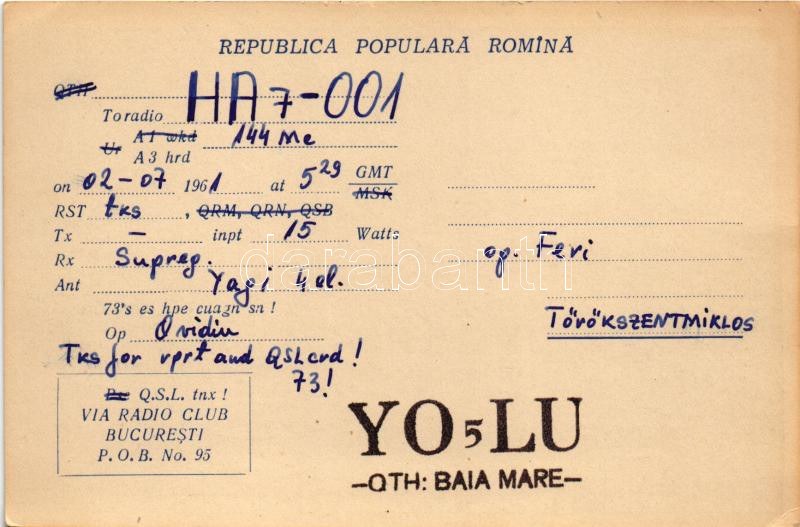 REPUBLICA POPULARĂ ROMÎNĂ
QTH
To radio HA7-001
Ur A1 wkd 144 Mc
A3 hrd
on 02-07 1961 at 5²⁹ GMT
MSK
RST tks, QRM, QRN, QSB
Tx — inpt 15 Watts
Rx Supreg.
Ant Yagi 4 el.
73's es hpe cuagn sn!
Op Ovidiu
Tks for vprt and QSL crd!
73!
Q.S.L. tnx!
VIA RADIO CLUB
BUCUREȘTI
P.O.B. No. 95
op. Feri
TÖRÖKSZENTMIKLOS
YO5LU
-QTH: BAIA MARE-
darabanth